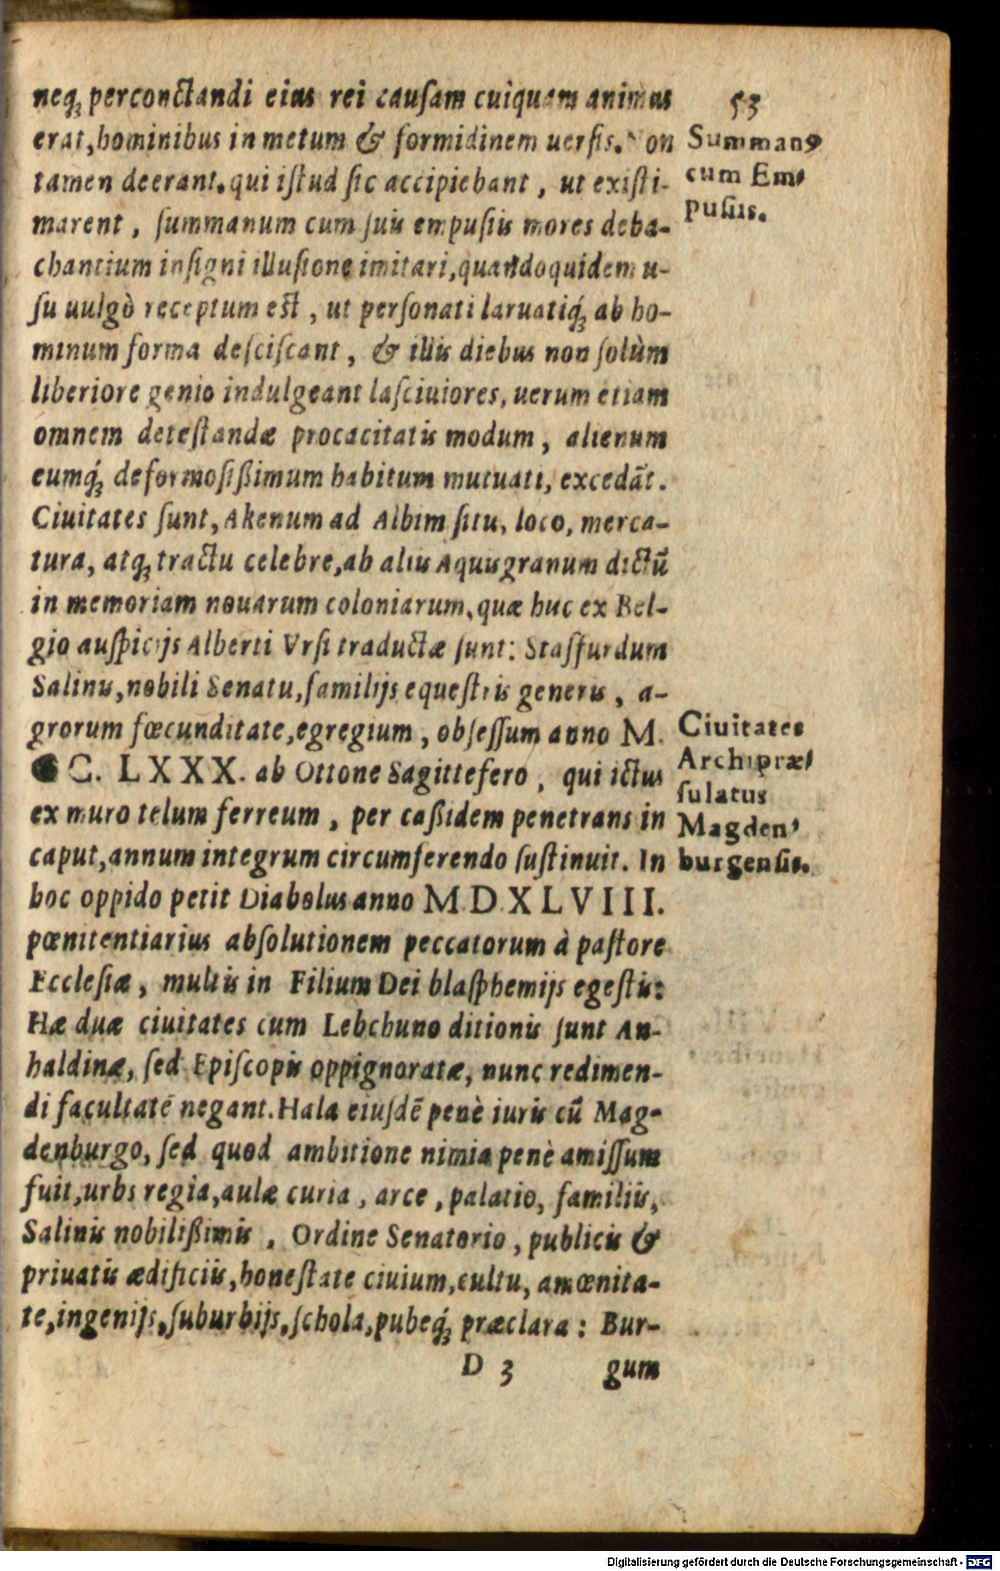 53
neq; perconctandi eius rei cauſam cuiquam animus
erat, hominibus in metum & formidinem uerſis. Non
tamen deerant, qui iſtud ſic accipiebant, ut exiſti-
marent, ſummanum cum ſuis empuſiis mores deba-
chantium inſigni illuſione imitari, quandoquidem u-
ſu uulgò receptum eſt, ut perſonati laruatiq́; ab ho-
minum forma deſciſcant, & illis diebus non ſolùm
liberiore genio indulgeant laſciuiores, uerum etiam
omnem deteſtandæ procacitatis modum, alienum
eumq́; deformoſißimum habitum mutuati, excedãt.
Ciuitates ſunt, Akenum ad Albim ſitu, loco, merca-
tura, atq; tractu celebre, ab aliis Aquisgranum dictũ
in memoriam nouarum coloniarum, quæ huc ex Bel-
gio auſpicijs Alberti Vrſi traductæ ſunt: Staſfurdum
Salinis, nobili Senatu, familijs equeſtris generis, a-
grorum fœcunditate, egregium, obſeſſum anno M.
C. LXXX. ab Ottone Sagittefero, qui ictus
ex muro telum ferreum, per caßidem penetrans in
caput, annum integrum circumferendo ſuſtinuit. In
hoc oppido petit Diabolus anno M D X L V I I I.
pœnitentiarius abſolutionem peccatorum à paſtore
Eccleſiæ, multis in Filium Dei blaſphemijs egeſtis:
Hæ duæ ciuitates cum Lebchuno ditionis ſunt An-
haldinæ, ſed Epiſcopis oppignoratæ, nunc redimen-
di facultatē negant. Hala eiuſdē penè iuris cũ Mag-
denburgo, ſed quod ambitione nimia penè amiſſum
fuit, urbs regia, aulæ curia, arce, palatio, familiis,
Salinis nobilißimis, Ordine Senatorio, publicis &
priuatis ædificiis, honeſtate ciuium, cultu, amœnita-
te, ingenijs, ſuburbijs, ſchola, pubeq́; præclara: Bur-
D 3 gum
Summanꝰ
cum Em-
puſiis.
Ciuitates
Archipræ-
ſulatus
Magden-
burgenſis.
Digitalisierung gefördert durch die Deutsche Forschungsgemeinschaft - DFG